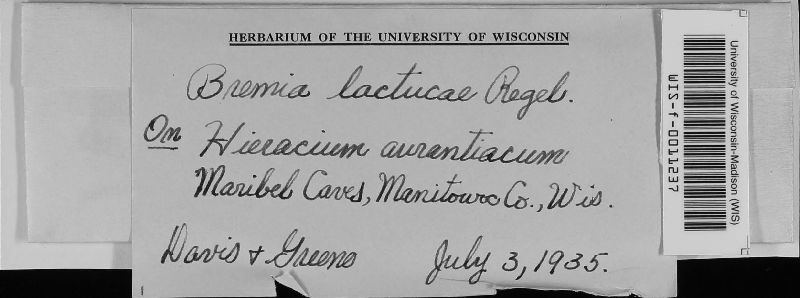 HERBARIUM OF THE UNIVERSITY OF WISCONSIN
Bremia lactucae Regel.
On Hieracium aurantiacum
Maribel Caves, Manitowoc Co., Wis.
Davis + Greene July 3, 1935.
University of Wisconsin-Madison (WIS)
WIS-f-0011237